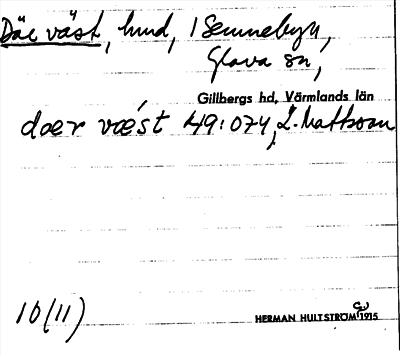 Däe väst, hmd, i Sennebyn,
Glava sn,
Gillbergs hd, Värmlands län
dœr vœ́st 49:074, L. Mattsson
10(11)
HERMAN HULTSTRÖM 1915